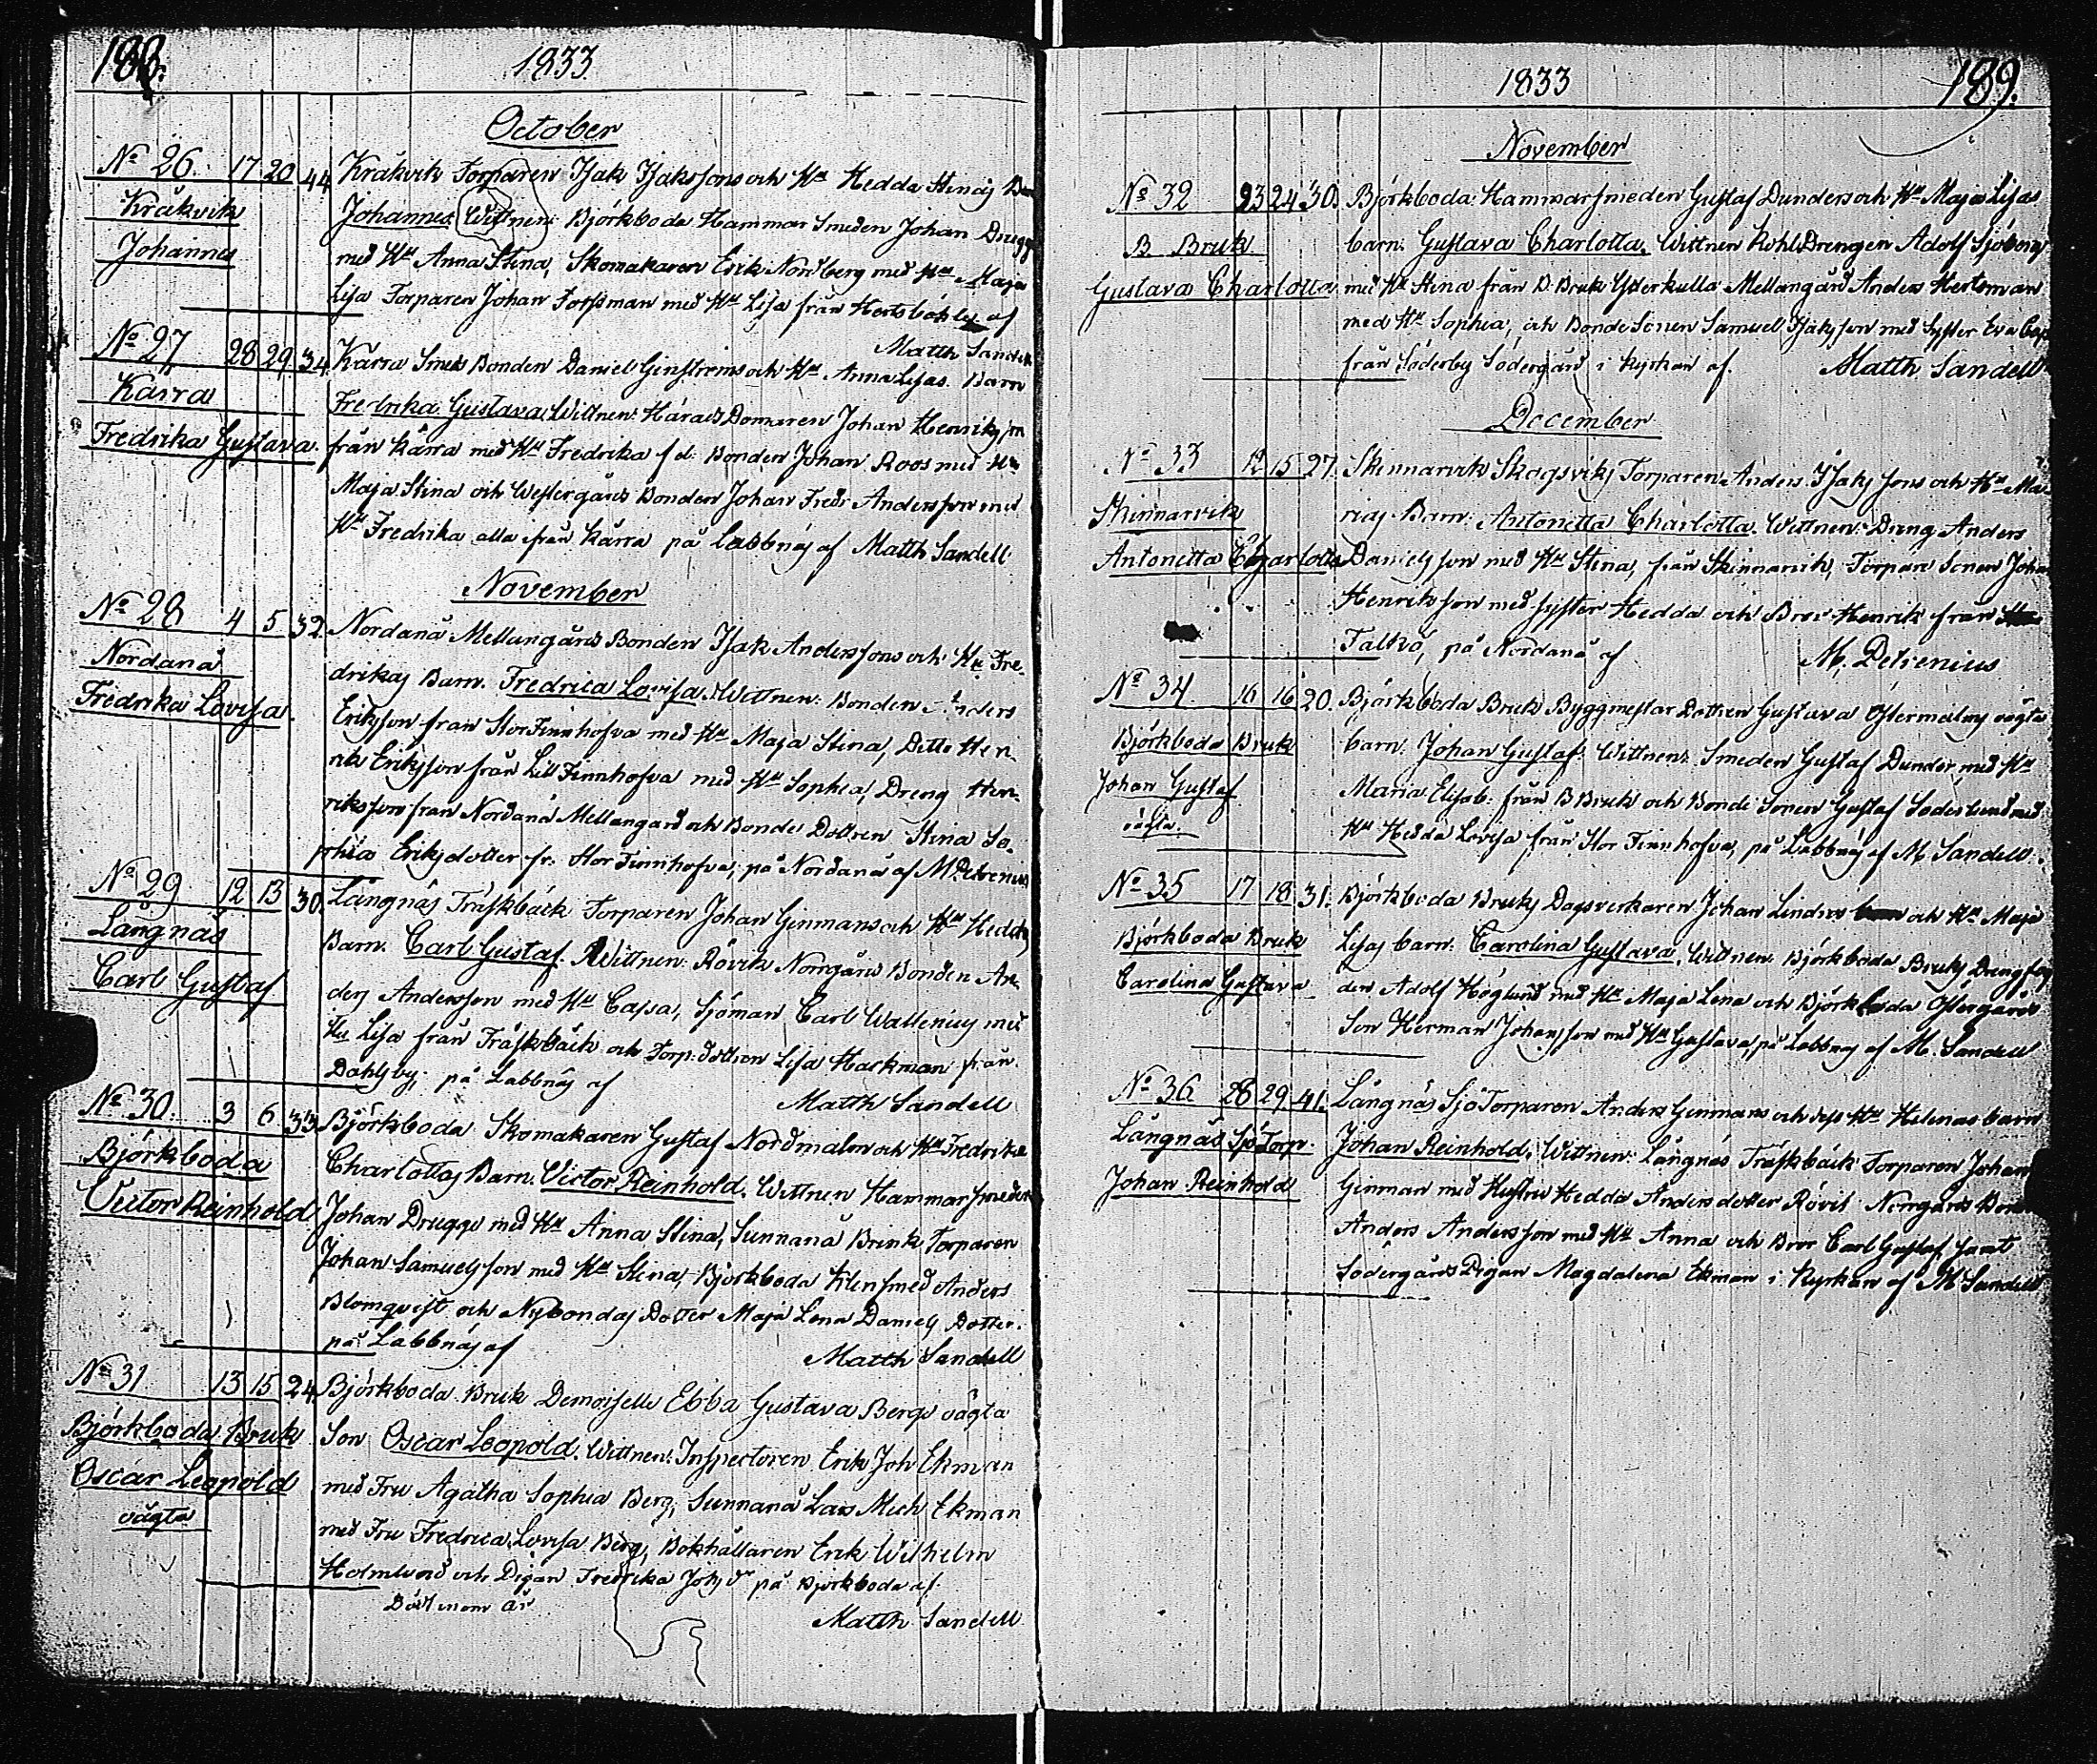 188.
1833
October
No 26. 17 20 44 Kråkvik Torparen Isak Isakssons och Hu Hedda Stinas
Kråkvik Johannes. Wittnen: Björkboda Hammar Smeden Johan Drugge
Johannes med Hu Anna Stina, Skomakaren Erik Nordberg med Hu Maja
Lisa Torparen Johan Forssman med Hu Lisa från Hertsböhle af
Matth Sandell
No 27 28 29 34 Kårra Smeds Bonden Daniel Genströms och Hu Anna Lisas Barn
Karra Fredrika Gustava. Wittnen: Härads Domaren Johan Henriksson
Fredrika Gustava. från Kårra med Hu Fredrika f d: Bonden Johan Roos med Hu
Maja Stina och Westergårds Bonden Johan Fredr Andersson med
Hu Fredrika alla ifrån Kårra på Labbnäs af Matth Sandell
November
No 28 4 5 32. Nordanå Mellangårds Bonden Isak Anderssons och Hu Fre-
Nordanå drikas Barn. Fredrica Lovisa. Wittnen: Bonden Anders
Fredrika Lovisa. Eriksson från Stor Finnhofva med Hu Maja Stina, Ditto Hen-
rik Eriksson från Lill Finnhofva med Hu Sophia, Dreng Hen-
riksson från Nordanå Mellangård och Bonde Dottren Stina So-
phia Eriksdotter fr. Stor Finnhofva, på Nordanå af M. Petrenius
No 29 12 13 30. Långnäs Träskbäck Torparen Johan Genmans och Hu Heddas
Långnäs Barn. Carl Gustaf. Wittnen: Rövik Norrgårds Bonden An-
Carl Gustaf ders Andersson med Hu Cajsa, Sjöman Carl Wallenius med
Hu Lisa från Träskbäck och Torp: dottren Lisa Hackman från
Dahlsby, på Labbnäs af
Matth Sandell
No 30. 3 6 33 Björkboda Skomakaren Gustaf Nordmalm och Hu Fredrika
Björkboda Charlottas Barn. Victor Reinhold. Wittnen Hammarsmeden
Victor Reinhold Johan Drugge med Hu Anna Stina, Sunnanå Brink Torparen
Johan Samuelsson med Hu Stina, Björkboda Klensmed Anders
Blomqvist och Nybondas Dotter Maja Lena Daniels Dotter.
på Labbnäs af
Matth Sandell
No 31 13 15 24 Björkboda Bruk Demoiselle Ebba Gustava Bergs oägta
Björkboda Bruk Son Oscar Leopold. Wittnen: Inspectoren Erik Joh Ekman
Oscar Leopold med Fru Agatha Sophia Berg, Sunnanå Lars Mich Ekman
oägta med Fru Fredrica Lovisa Berg, Bokhållaren Erik Wilhelm
Holmlund och Pigan Fredrika Johs dr på Björkboda af
Död inom år
Matth Sandell
1833
189.
November
No 32 23 24 30. Björkboda Hammarsmeden Gustaf Dunders och Hu Maja Lisas
B Bruk barn: Gustava Charlotta. Wittnen Kohl Drengen Adolf Sjöberg
Gustava Charlotta med Hu Stina från B. Bruk Ytterkulla Mellangård Anders Hertsman
med Hu Sophia, och Bonde Sonen Samuel Isaksson med Syster Eva
från Söderby Södergård i Kyrkan af. Matth Sandell
December
No 33 12 15 27. Skinnarvik Skogsviks Torparen Anders Isaks sons och Hu Ma-
Skinnarvik rias Barn: Antonetta Charlotta. Wittnen: Dreng Anders
Antonetta Charlotta Danielsson med Hu Stina, från Skinnarvik, Torpare Sonen Johan
Henriksson med syster Hedda och Bror Henrik från
Falkö, på Nordanå af M, Petrenius
No 34 16 16 20. Björkboda Bruk Byggmestar Dottren Gustava Östermalms oägta
Björkboda Bruk barn. Johan Gustaf. Wittnen: Smeden Gustaf Dunder med Hu
Johan Gustaf Maria Elisab: från B Bruk och Bonde Sonen Gustaf Söderlund med
oägta. Hu Hedda Lovisa från Stor Finnhofva, på Labbnäs af M Sandell.
No 35 17 18 31. Björkboda Bruks Dagsverkaren Johan Linders och Hu Maja
Björkboda Bruk Lisas barn. Carolina Gustava. Wittnen Björkboda Bruks
Carolina Gustava den Adolf Höglund med Hu Maja Lena och Björkboda Östergårds
Son Herman Johansson med Hu Gustava, på Labbnäs af M. Sandell
No 36 28 29 41. Långnäs Sjö Torparen Anders Genmans och dess Hu Helenas barn
Långnäs Sjö Torp. Johan Reinhold. Wittnen: Långnäs Träskbäck Torparen Johan
Johan Reinhold Genman med Hustru Hedda Andersdotter Rövik Norrgårds
Anders Andersson med Hu Anna och Bror Carl Gustaf samt
Södergårds Pigan Magdalena Ekman i Kyrkan af M Sandell